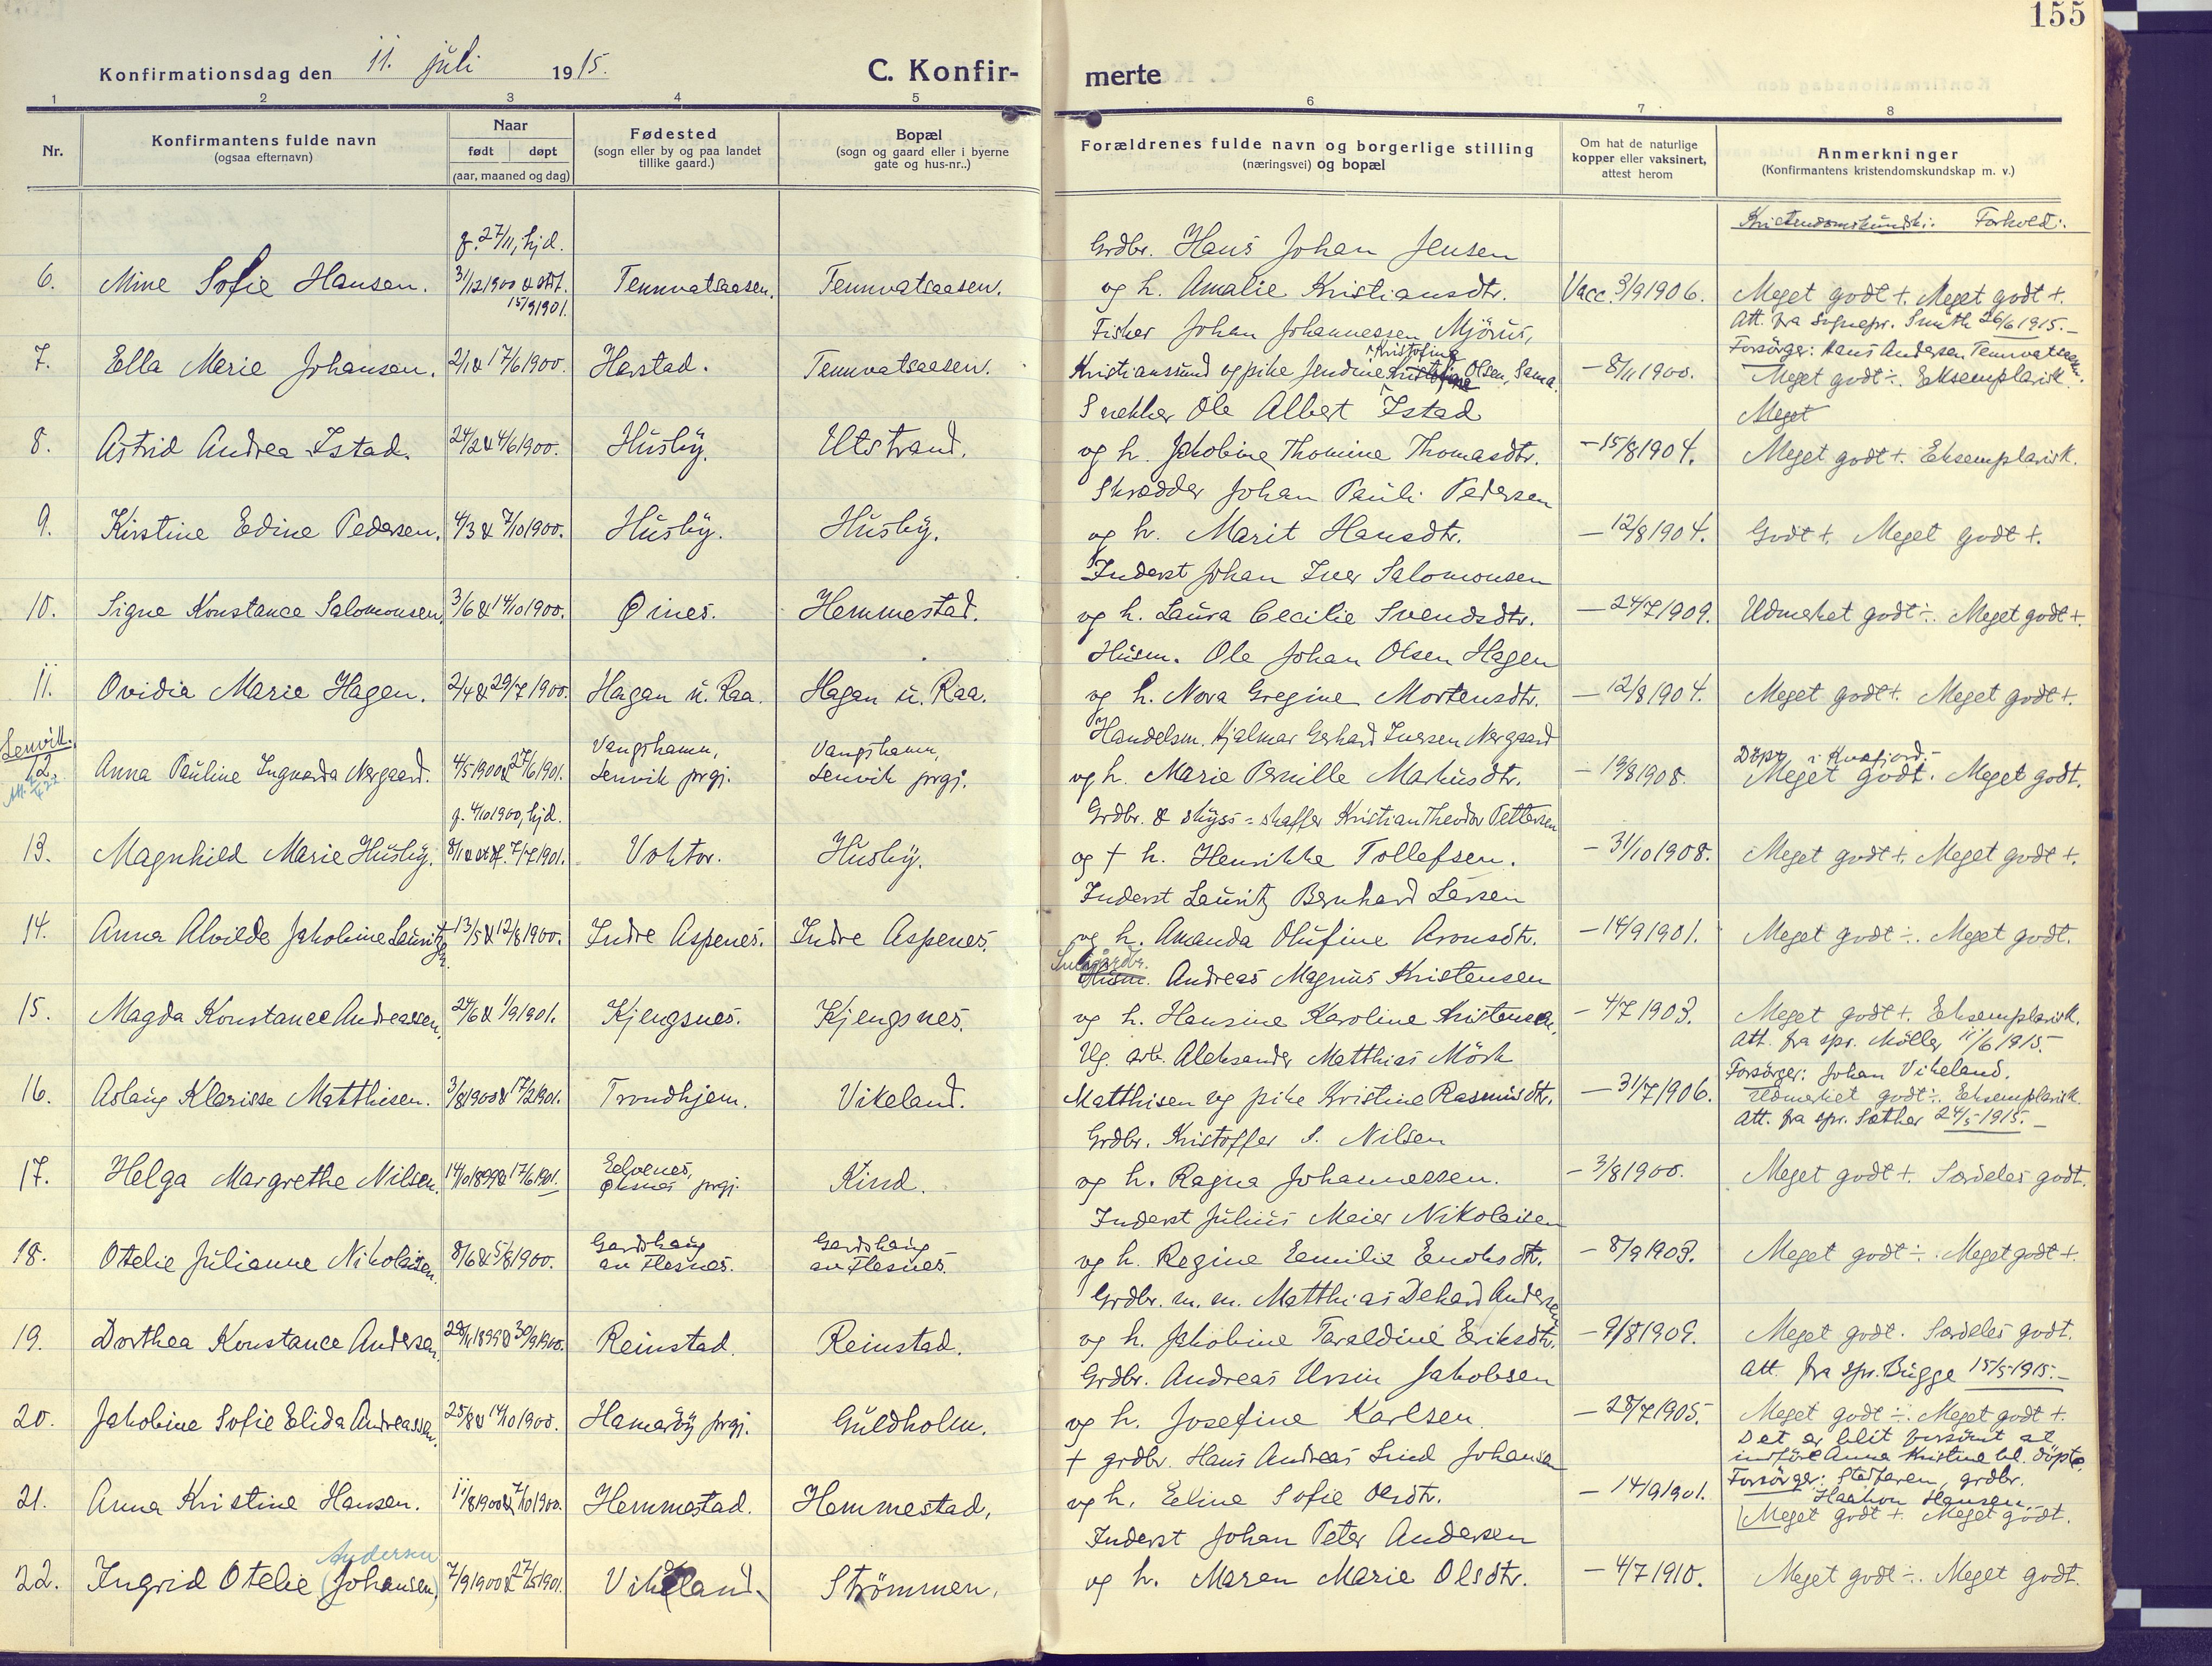 155
Konfirmationsdag den 11. juli 1915.
C. Konfirmerte
1 2 3 4 5 6 7 8
Nr.
Konfirmantens fulde navn
(ogsaa efternavn)
Naar
født døpt
(aar, maaned og dag)
Fødested
(sogn eller by og paa landet
tillike gaard.)
Bopæl
(sogn og gaard eller i byerne
gate og hus-nr..)
Forældrenes fulde navn og borgerlige stilling
(næringsvei) og bopæl
Om hat de naturlige
kopper eller vaksinert,
attest herom
Anmerkninger
(Konfirmantens kristendomskundskap m. v.)
Kristendomskundsk.: Forhold:
g. 27/11, hjd.
Grdbr. Hans Johan Jensen
6. Mine Sofie Hansen. 31/12 1900 & stdf. 15/9 1901. Tennvatsaasen. Tennvatsaasen. og h. Amalie Kristiansdtr. Vacc. 3/9 1906. Meget godt +. Meget godt +.
Att. fra sognepr. Smith 26/6 1915.
Fisker Johan Johannessen Mjörus,
Forsörger: Hans Andersen Tennvatsaasen.
7. Ella Marie Johansen. 2/1 & 17/6 1900. Harstad. Tennvatsaasen. Kristianssund og pike Jendine Kristofine Olsen, Sama. – 8/11 1900. Meget godt ÷. Eksemplarisk.
Snekker Ole Albert Istad
Meget
8. Astrid Andrea Istad. 24/2 & 4/6 1900. Husby. Utstrand. og h. Jakobine Thomine Thomasdtr. – 15/8 1904. Meget godt +. Eksemplarisk.
Skrædder Johan Pauli Pedersen
9. Kirstine Edine Pedersen. 4/3 & 7/10 1900. Husby. Husby. og h. Marit Hansdtr. – 12/8 1904. Godt +. Meget godt +.
Inderst Johan Iver Salomonsen
10. Signe Konstance Salomonsen. 3/6 & 14/10 1900. Øines. Hemmestad. og h. Laura Cecilie Svendsdtr. – 24/7 1909. Udmerket godt ÷. Meget godt +.
Husm. Ole Johan Olsen Hagen
11. Ovidia Marie Hagen. 2/4 & 29/7 1900. Hagan u. Raa. Hagan u. Raa. og h. Nova Gregine Mortensdtr. – 12/8 1904. Meget godt +. Meget godt +.
Handelsm. Hjalmar Gerhard Iversen Nergaard
Lenvik.
12. Anna Pauline Ingvarda Nergaard. 4/5 1900 & 27/6 1901. Vangshamn, Lenvik prgj. Vangshamn, Lenvik prgj. og h. Marie Pernille Markusdtr. – 19/8 1908. Döpt i Kvæfjord. – Meget godt. Meget godt.
g. 4/10 1900, hjd.
Grdbr. & skyss-skaffer Kristian Theodor Pettersen
13. Magnhild Marie Husby. 8/1 & stdf. 7/7 1901. Voktor. Husby. og † h. Henrikke Tollefsen. – 31/10 1908. Meget godt +. Meget godt +.
Inderst Lauritz Bernhard Larsen
14. Anna Alvilde Jakobine Lauritzen. 13/5 & 12/8 1900. Indre Aspenes. Indre Aspenes. og h. Amanda Olufine Aronsdtr. – 14/9 1901. Meget godt ÷. Meget godt.
Husm. Andreas Magnus Kristensen
15. Magda Konstance Andreassen. 24/6 & 1/9 1901. Kjengsnes. Kjengsnes. og h. Hansine Karoline Kristensen. – 4/7 1903. Meget godt +. Eksemplarisk.
Att. fra spr. Möller 11/6 1915.
Ug. arb. Aleksander Matthias Mörk
Forsörger: Johan Vikeland.
16. Aslaug Klarisse Matthisen. 3/8 1900 & 17/2 1901. Trondhjem. Vikeland. Matthisen og pike Kristine Rasmusdtr. – 31/7 1906. Udmerket godt ÷. Eksemplarisk.
Att. fra spr. Sæther 24/5 1915. –
Grdbr. Kristoffer S. Nilsen
17. Helga Margrethe Nilsen. 14/10 1899 & 17/6 1901. Øksnes prgj. Kind. og h. Ragna Johannessen. – 3/8 1900. Meget godt +. Særdeles godt.
Inderst Julius Meier Nikolaisen
18. Otelie Julianne Nikolaisen. 8/6 & 5/8 1900. Gardshaug av Flesnes. Gardshaug av Flesnes. og h. Regine Emilie Enoksdtr. – 8/9 1903. Meget godt ÷. Meget godt +.
Grdbr. m. m. Matthias Dehard Andersen
19. Dorthea Konstance Andersen. 28/11 1899 & 30/9 1900. Reinstad. Reinstad. og h. Jakobine Taraldine Eriksdtr. – 9/8 1909. Meget godt. Særdeles godt.
Att. fra spr. Bugge 15/5 1915. –
Grdbr. Andreas Ursin Jakobsen
20. Jakobine Sofie Elida Andreassen. 25/8 & 14/10 1900. Hamarøy prgj. Guldholm. og h. Josefine Karlsen. – 28/7 1905. Meget godt ÷. Meget godt +.
Det er blit forsömt at
indföre Anna Kristine bl. döpte.
† grdbr. Hans Andreas Lind Johansen
Forsörger: Stedfaren, grdbr.
Haakon Hansen. –
21. Anna Kristine Hansen. 11/8 1900 & 7/10 1900. Hemmestad. Hemmestad. og h. Eline Sofie Olsdtr. – 14/9 1901. Meget godt +. Meget godt.
Inderst Johan Peter Andersen
Andersen
22. Ingrid Otelie (Johansen) 7/9 1900 & 27/5 1901. Vikeland. Strömmen. og h. Maren Marie Olsdtr. – 4/7 1910. Meget godt ÷. Meget godt.